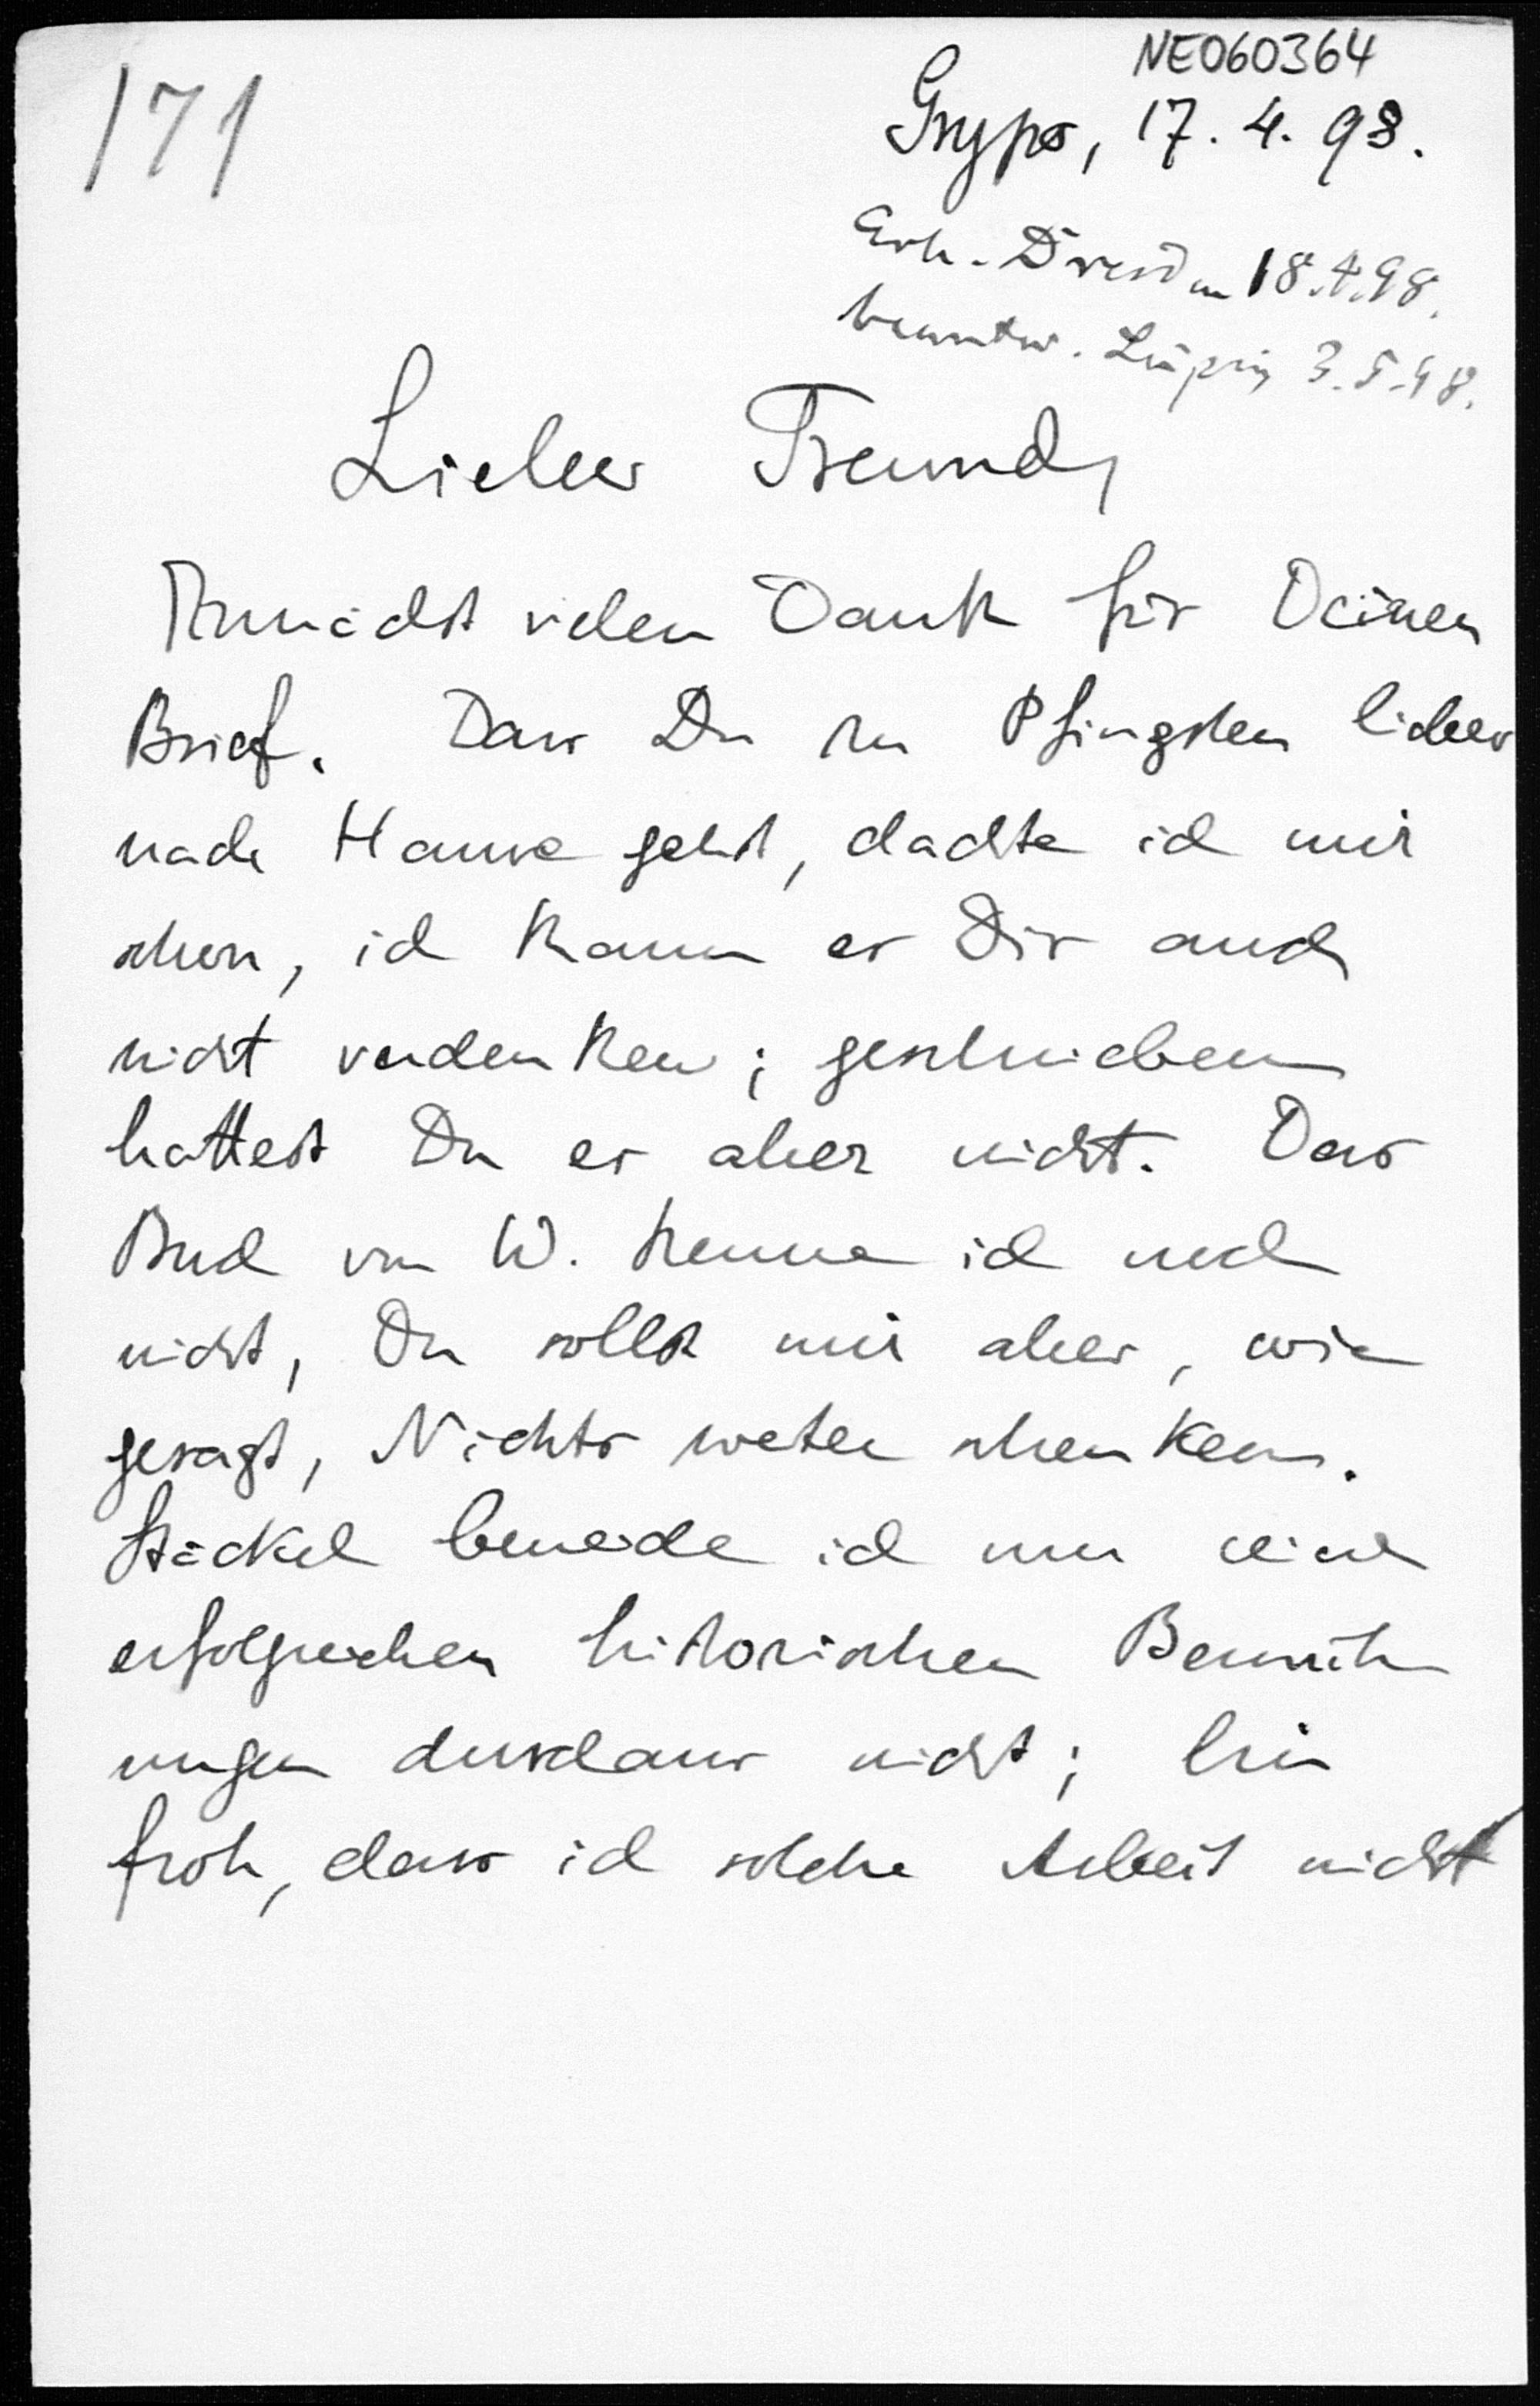 NE060364
171
Gryps, 17. 4. 98.
Erh. Dresden 18.4.98.
beantw. Leipzig 3.5.98.
Lieber Freund,
Zunächst vielen Dank für Deinen
Brief. Dass Du zu Pfingsten lieber
nach Hause gehst, dachte ich mir
schon, ich kann es Dir auch
nicht verdenken; geschrieben
hattest Du es aber nicht. Das
Buch von W. kenne ich noch
nicht, Du sollst mir aber, wie
gesagt, Nichts weiter schenken.
Stäckel beneide ich um seine
erfolgreichen historischen Bemüh
ungen durchaus nicht; bin
froh, dass ich solche Arbeit nicht